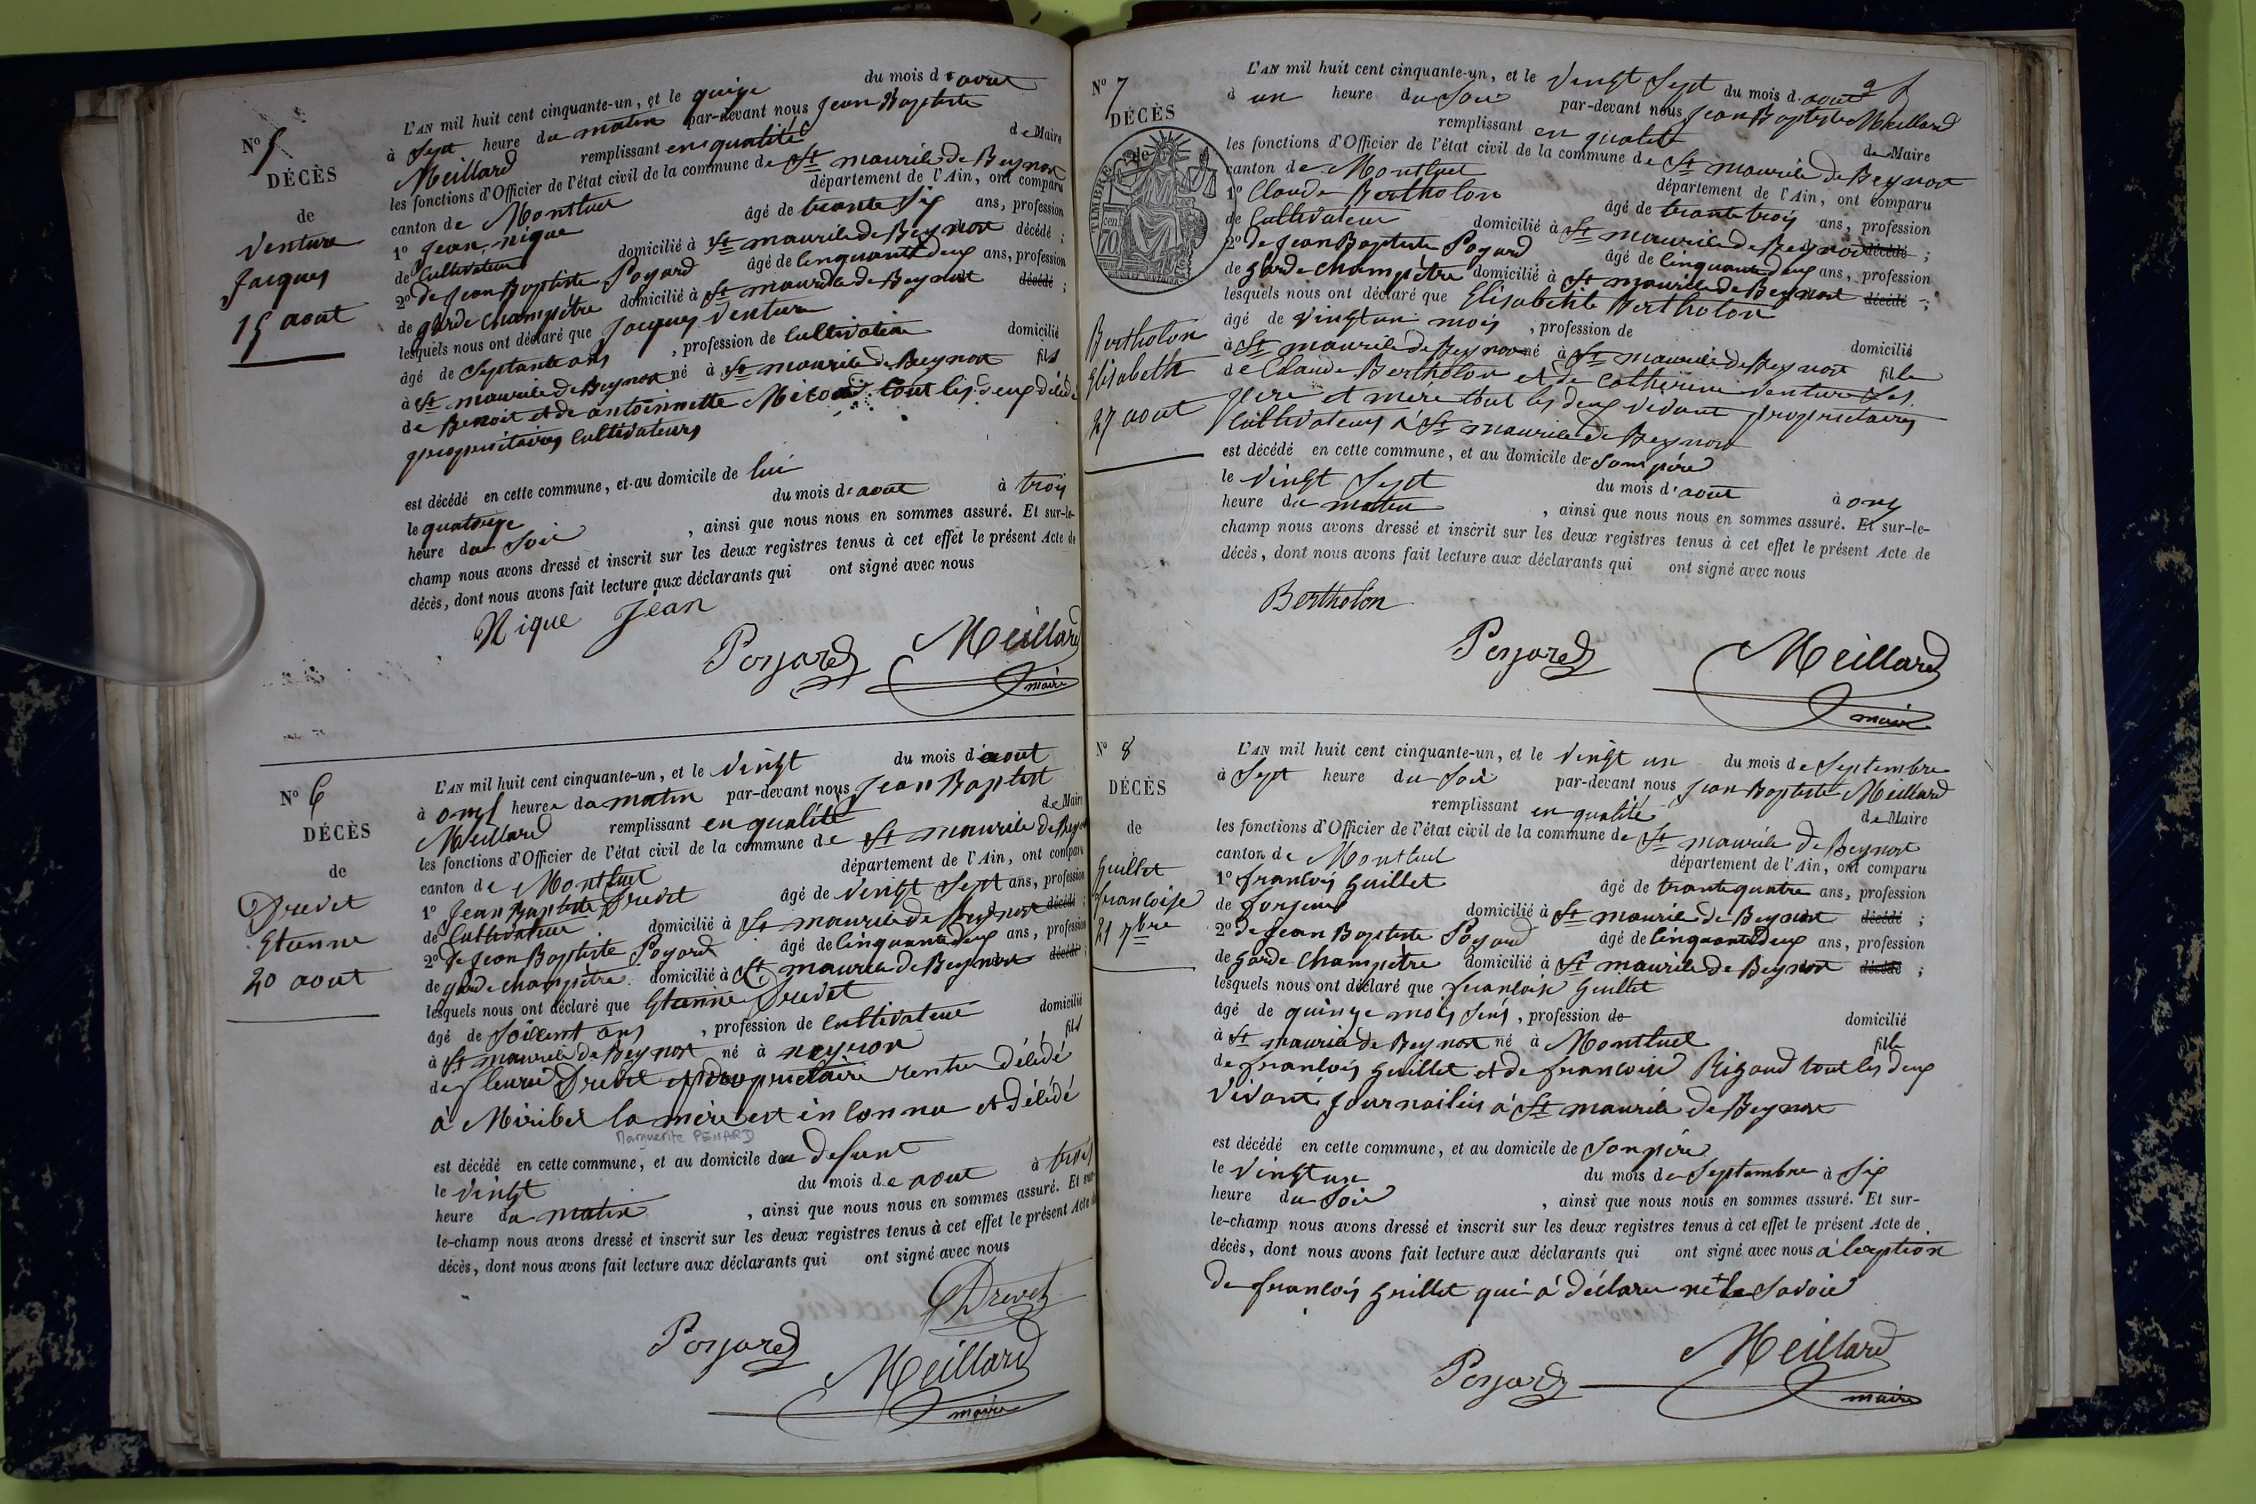 N° 5
DÉCÈS
de
Ventura
Jacques
15 aout
L'AN mil huit cent cinquante-un, et le quinze du mois d'aout
à Sept heure du matin par-devant nous Jean Baptiste
Meillard remplissant en qualité de Maire
les fonctions d'Officier de l'état civil de la commune de St maurice de Beynost
canton de Montluel département de l'Ain, ont comparu
1° Jean nique âgé de trante Six ans, profession
de Cultivateur domicilié à St maurice de Beynost décédé ;
2° de Jean Baptiste Poyard âgé de Cinquante deux ans, profession
de garde champêtre domicilié à St maurice de Beynost décédé ;
lesquels nous ont déclaré que Jacques Ventura
âgé de Septante ans , profession de Cultivateur domicilié
à St maurice de Beynost né à St maurice de Beynost fils
de Benoit et de antoinnette tout les deux décédé
propriétaires Cultivateurs
est décédé en cette commune, et au domicile de lui
le quatorze du mois d'aout à trois
heure du Soir , ainsi que nous nous en sommes assuré. Et sur-le-
champ nous avons dressé et inscrit sur les deux registres tenus à cet effet le présent Acte de
décès, dont nous avons fait lecture aux déclarants qui ont signé avec nous
Nique Jean
Poyard Meillard
maire
N° 6
DÉCÈS
de
Drevet
Etienne
20 aout
L'AN mil huit cent cinquante-un, et le Vingt du mois d'aout
à onze heure du matin par-devant nous Jean Baptist
Meillard remplissant en qualité de Maire
les fonctions d'Officier de l'état civil de la commune de St maurice de Beynost
canton de Montluel département de l'Ain, ont comparu
1° Jean Baptiste Drevet âgé de Vingt Sept ans, profession
de Cultivateur domicilié à St maurice de Beynost décédé ;
2° de Jean Baptiste Poyard âgé de Cinquante deux ans, profession
de garde champêtre domicilié à St maurice de Beynost décédé ;
lesquels nous ont déclaré que Etienne Drevet
âgé de Soissent ans , profession de Cultivateur domicilié
à St maurice de Beynost né à neyron fils
de fleurie Drevet propriétaire rentier décédé
à Miribel la mère est inconnu et décédé
Marguerite PENARD
est décédé en cette commune, et au domicile du defunt
le Vingt du mois de aout à
heure du matin , ainsi que nous nous en sommes assuré. Et sur-
le-champ nous avons dressé et inscrit sur les deux registres tenus à cet effet le présent Acte de
décès, dont nous avons fait lecture aux déclarants qui ont signé avec nous
Drevet
Poyard
Meillard
maire
N° 7
DÉCÈS
de
TIMBRE
70 cent
Bertholon
Elisabeth
27 aout
L'AN mil huit cent cinquante-un, et le Vingt Sept du mois d'aout
à un heure du Soir par-devant nous Jean Baptiste Meillard
remplissant en qualité de Maire
les fonctions d'Officier de l'état civil de la commune de St maurice de Beynost
canton de Montluel département de l'Ain, ont comparu
1° Claude Bertholon âgé de trante trois ans, profession
de Cultivateur domicilié à St maurice de Beynost décédé ;
2° de Jean Baptiste Poyard âgé de Cinquante deux ans, profession
de garde champêtre domicilié à St maurice de Beynost décédé ;
lesquels nous ont déclaré que Elisabethte Bertholon
âgé de Vingt un mois , profession de domicilié
à St maurice de Beynost né à St maurice de Beynost fille
de Claude Bertholon et de Catherine Ventura Ses
père et mère tout les deux vivant propriétaires
Cultivateurs à St maurice de Beynost
est décédé en cette commune, et au domicile de Son père
le Vingt Sept du mois d'aout à onz
heure du matin , ainsi que nous nous en sommes assuré. Et sur-le-
champ nous avons dressé et inscrit sur les deux registres tenus à cet effet le présent Acte de
décès, dont nous avons fait lecture aux déclarants qui ont signé avec nous
Bertholon
Poyard Meillard
maire
N° 8
DÉCÈS
de
Guillet
francoise
21 7bre
L'AN mil huit cent cinquante-un, et le Vingt un du mois de Septembre
à Sept heure du Soir par-devant nous Jean Baptiste Meillard
remplissant en qualité de Maire
les fonctions d'Officier de l'état civil de la commune de St maurice de Beynost
canton de Montluel département de l'Ain, ont comparu
1° francois Guillet âgé de trante quatre ans, profession
de domicilié à St maurice de Beynost décédé ;
2° de Jean Baptiste Poyard âgé de Cinquante deux ans, profession
de garde champêtre domicilié à St maurice de Beynost décédé ;
lesquels nous ont déclaré que francoise Guillet
âgé de quinze mois , profession de domicilié
à St maurice de Beynost né à Montluel fille
de francois Guillet et de francoise Rigaud tout les deux
Vivant à St maurice de Beynost
est décédé en cette commune, et au domicile de Son père
le Vingt un du mois de Septembre à Six
heure du Soir , ainsi que nous nous en sommes assuré. Et sur-
le-champ nous avons dressé et inscrit sur les deux registres tenus à cet effet le présent Acte de
décès, dont nous avons fait lecture aux déclarants qui ont signé avec nous à lexption
de francois Guillet qui à déclaré ne le Savoir
Poyard Meillard
maire